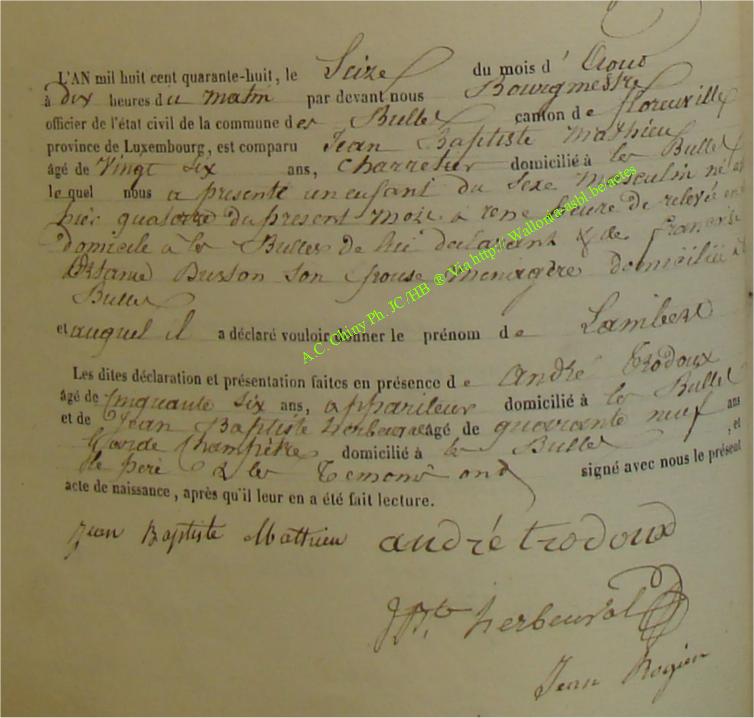 L'AN mil huit cent quarante-huit, le Seize du mois d' Aout
à dix heures du matin par devant nous Bourgmestre
officier de l'état civil de la commune des Bulles canton de florenville
province de Luxembourg, est comparu Jean Baptiste Mathieu
âgé de Vingt six ans, Charretier domicilié à les Bulles
le quel nous a présenté un enfant du sexe masculin né
hier quatorze du present mois à heure de relevée en
domicile a les Bulles de lui declarant & de
Busson son Epouse menagère domiciliée
Bulles
et auquel il a déclaré vouloir donner le prénom de Lambert
Les dites déclaration et présentation faites en présence de André Trodoux
âgé de Cinquante six ans, appareleur domicilié à les Bulles
et de Jean Baptiste herbeuval âgé de quarante neuf ans
Garde Champêtre domicilié à les Bulles, et
le père & les Temoins ont signé avec nous le présent
acte de naissance, après qu'il leur en a été fait lecture.
Jean Baptiste Mathieu andré trodoux
JBte herbeuval
Jean
A.C. Chiny Ph. JC/HB ® Via http://Wallonia-asbl.be/actes